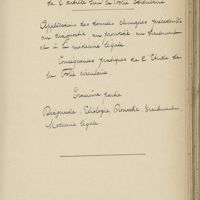 de l'étude sur la Folie Circulaire
Applications des données cliniques précédentes
au diagnostic, au pronostic, au traitement
et à la médecine légale.
Conséquences pratiques de l'Etude de
la Folie circulaire.
Troisième partie
Diagnostic, Etiologie, Pronostic, Traitement
Médecine légale.